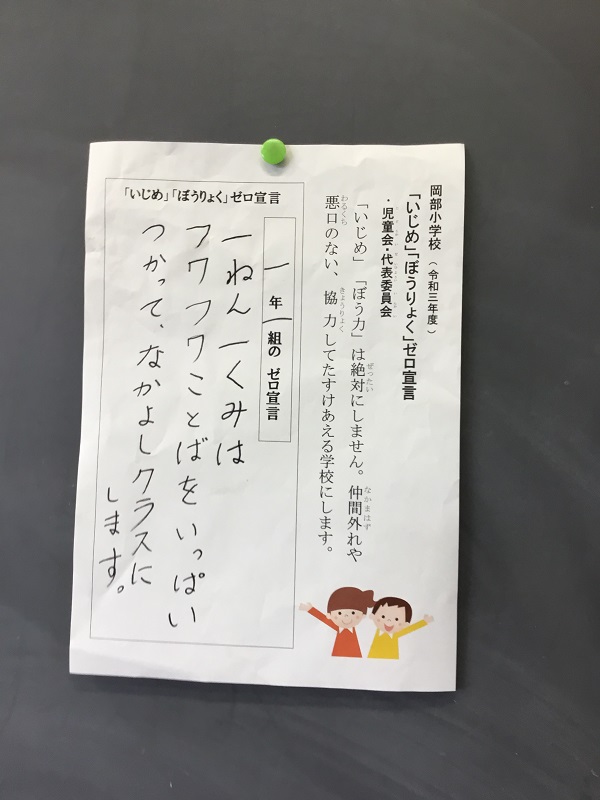 岡部小学校（令和三年度）
「いじめ」「ぼうりょく」ゼロ宣言
・児童会・代表委員会
「いじめ」「ぼう力」は絶対にしません。仲間外れや
悪口のない、協力してたすけあえる学校にします。
「いじめ」「ぼうりょく」ゼロ宣言
一年一組の ゼロ宣言
一ねん一くみは
フワフワことばをいっぱい
つかって、なかよしクラスに
します。